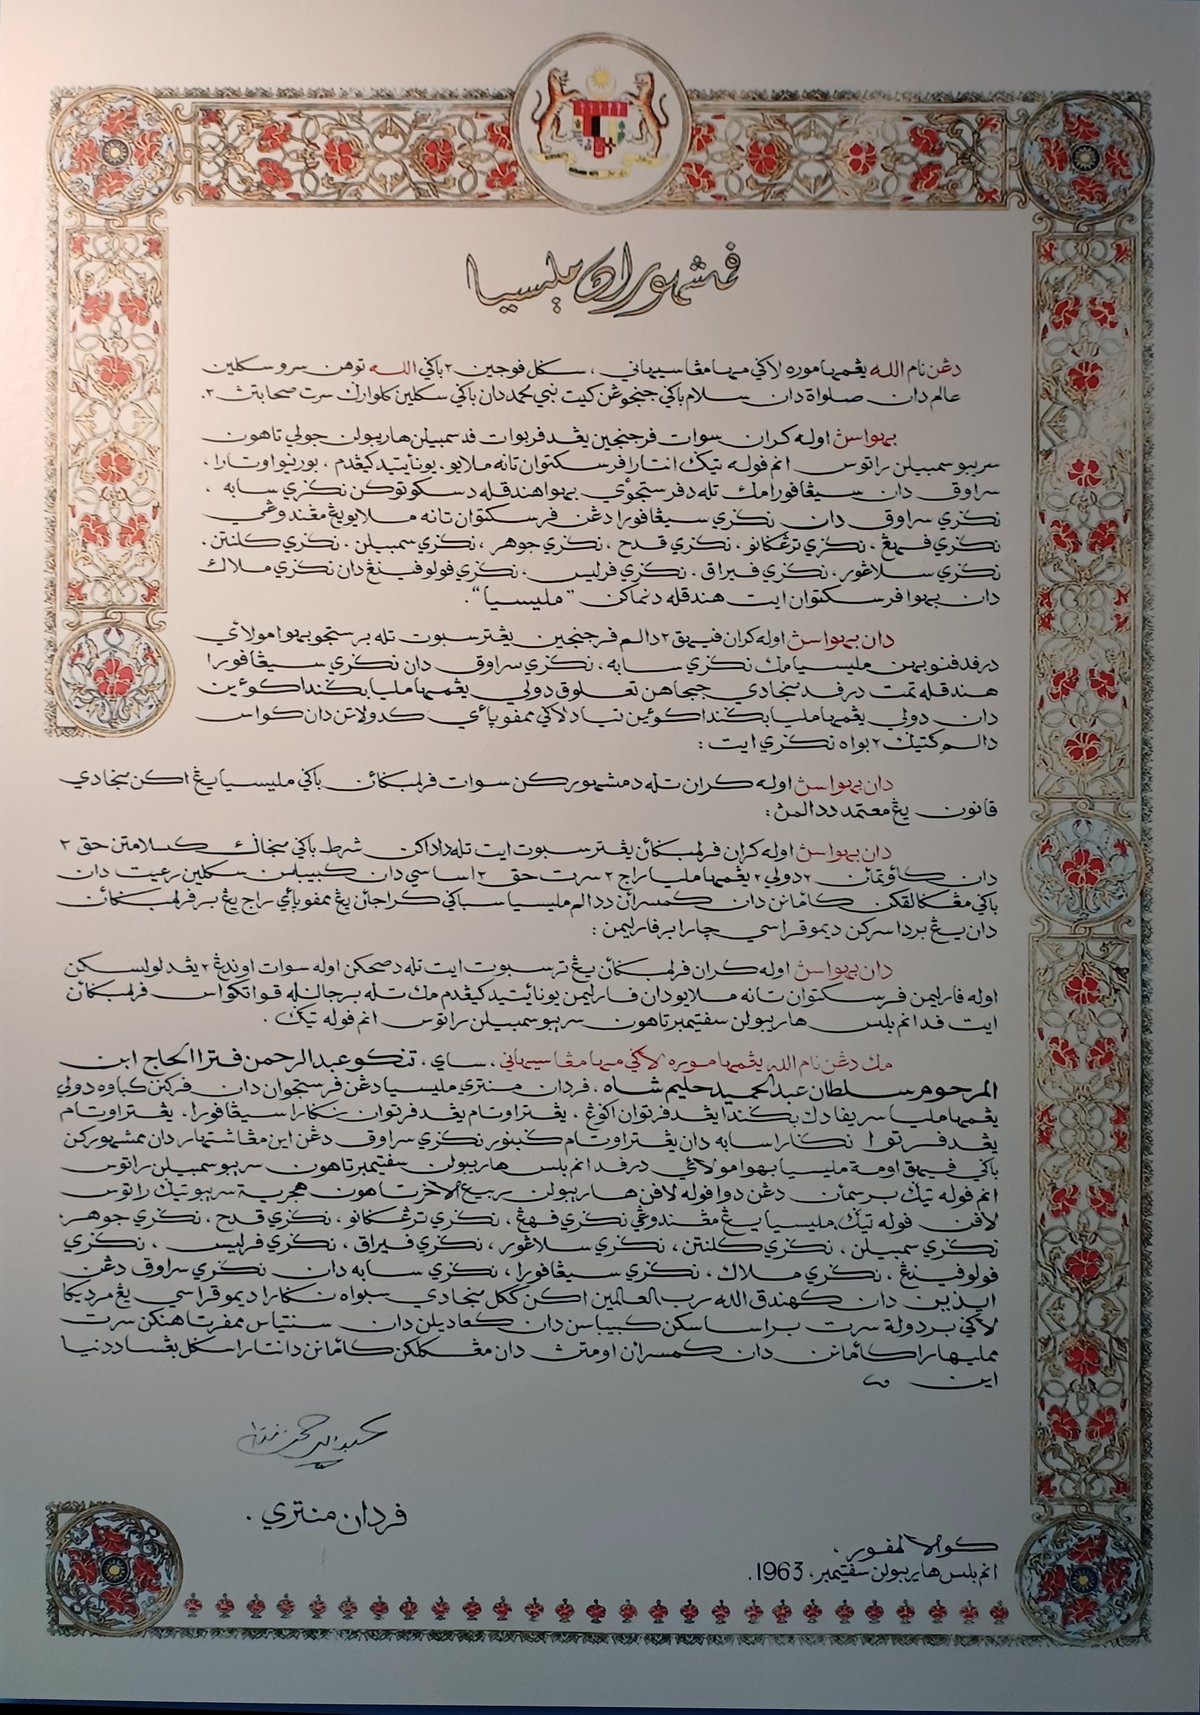 فمشهوران مليسيا
دڠن نام الله يڠمهاموره لاݢي مها مڠاسيهاني ، سݢل فوجين٢ باݢي الله توهن سرو سكلين
عالم دان صلواة دان سلام باݢي جنجوڠن كيت نبي محمد دان باݢي سكلين كلوارݢ سرت صحابتڽ٢.
بهواسڽ اوله كران سوات فرجنجين يڠدفربوات فد سمبيلن هاريبولن جولاي تاهون
سريبو سمبيلن راتوس انم فوله تيݢ انتارا فرسكتوان تانه ملايو، يونايتيد كيڠدم ، بورنيو اوتارا ،
سراوق دان سيڠافورا مك تله دفرستجوٴي بهوا هندقله دسكوتوكن نݢري سابه ،
نݢري سراوق دان نݢري سيڠافورا دڠن فرسكتوان تانه ملايو يڠ مڠندوڠي
نݢري فهڠ ، نݢري ترڠݢانو ، نݢري قدح ، نݢري جوهر ، نݢري سمبيلن ، نݢري كلنتن ،
نݢري سلاڠور ، نݢري فيراق ، نݢري فرليس ، نݢري فولو فينڠ دان نݢري ملاك
دان بهوا فرسكتوان ايت هندقله دنماكن "مليسيا".
دان بهواسڽ اوله كران فيهق٢ دالم فرجنجين يڠترسبوت تله برستجو بهوا مولاٴي
درفد فنوبهن مليسيا مك نݢري سابه ، نݢري سراوق دان نݢري سيڠافورا
هندقله تمت درفد منجادي ججاهن تعلوق دولي يڠمها مليا بݢندا كوئين
دان دولي يڠمها مليا بݢندا كوئين تياد لاݢي ممفوڽاٴي كدولاتن دان كواس
دالم كتيݢ٢ بواه نݢري ايت :
دان بهواسڽ اوله كران تله دمشهوركن سوات فرلمبݢاٴن باݢي مليسيا يڠ اكن منجادي
قانون يڠ معتمد ددالمڽ :
دان بهواسڽ اوله كران فرلمبݢاٴن يڠترسبوت ايت تله داداكن شرط باݢي منجاݢ كسلامتن حق٢
دان كاٴوتماٴن٢ دولي٢ يڠمها مليا راج٢ سرت حق٢ اساسي دان كبيبسن سكلين رعيت دان
باݢي مڠكالقكن كاٴمانن دان كمسراٴن ددالم مليسيا سباݢي كراجاٴن يڠ ممفوڽاٴي راج يڠ برفرلمبݢاٴن
دان يڠ برداسركن ديموقراسي چارا برفارليمن :
دان بهواسڽ اوله كران فرلمبݢاٴن يڠ ترسبوت ايت تله دصحكن اوله سوات اوندڠ٢ يڠدلولسكن
اوله فارليمن فرسكتوان تانه ملايو دان فارليمن يونايتيد كيڠدم مك تله برجالنله قواتكواس فرلمبݢاٴن
ايت فد انم بلس هاريبولن سفتيمبر تاهون سريبو سمبيلن راتوس انم فوله تيݢ .
مك دڠن نام الله يڠمهاموره لاݢي مها مڠاسيهاني ، ساي ، تنكو عبدالرحمن فترا الحاج ابن
المرحوم سلطان عبدالحميد حليم شاه ، فردان منتري مليسيا دڠن فرستجوان دان فركنن كباوه دولي
يڠمها مليا سريفادك بݢندا يڠدفرتوان اݢوڠ ، يڠتراوتام يڠدفرتوان نݢارا سيڠافورا ، يڠتراوتام
يڠدفرتوا نݢارا سابه دان يڠتراوتام ݢبنور نݢري سراوق دڠن اين مڠاشتهار دان ممشهوركن
باݢي فيهق اومة مليسيا بهوا مولاٴي درفد انم بلس هاريبولن سفتيمبر تاهون سريبو سمبيلن راتوس
انم فوله تيݢ برسماٴن دڠن دوا فوله لافن هاريبولن ربيع الاخر تاهون هجرية سريبو تيݢ راتوس
لافن فوله تيݢ مليسيا يڠ مڠندوڠي نݢري فهڠ ، نݢري ترڠݢانو ، نݢري قدح ، نݢري جوهر ،
نݢري سمبيلن ، نݢري كلنتن ، نݢري سلاڠور ، نݢري فيراق ، نݢري فرليس ، نݢري
فولو فينڠ ، نݢري ملاك ، نݢري سيڠافورا ، نݢري سابه دان نݢري سراوق دڠن
ايذين دان كهندق الله رب العالمين اكن ككل منجادي سبواه نݢارا ديموقراسي يڠ مرديكا
لاݢي بردولة سرت براساسكن كبيباسن دان كعاديلن دان سنتياس ممفرتاهنكن سرت
ممليهارا كاٴمانن دان كمسراٴن اومتڽ دان مڠكلكن كاٴمانن دانتارا سݢل بڠسا ددنيا
اين
فردان منتري .
كوالا لمفور ،
انم بلس هاريبولن سفتيمبر، 1963.